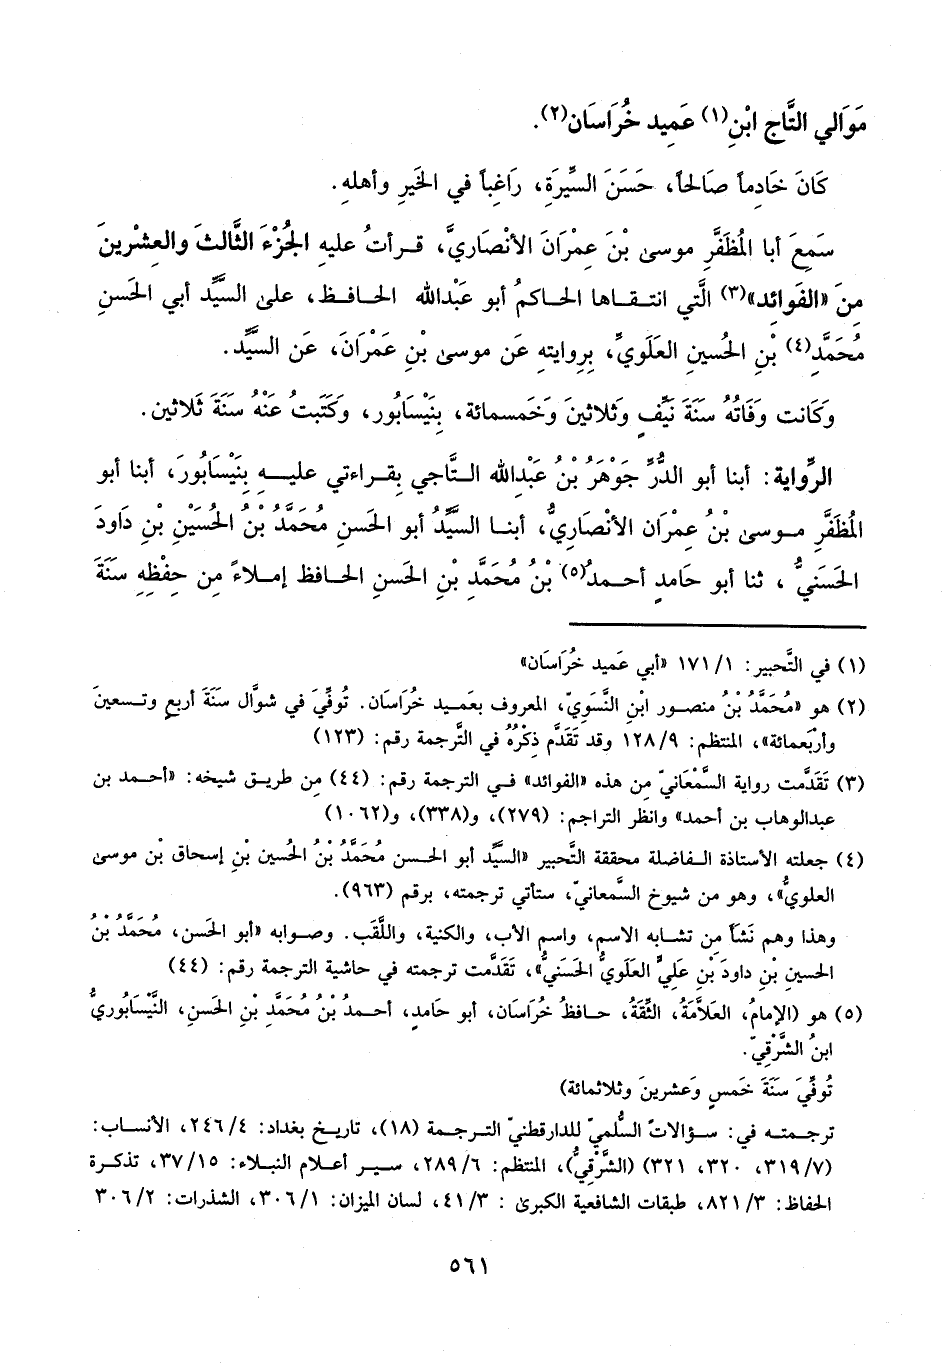 مَوَالي التَّاج ابْنِ(١) عَمِيد خُرَاسَان(٢).
كَانَ خَادِماً صَالحاً، حَسَنَ السِّيرَةِ، رَاغِباً في الخَيرِ وأهلهِ.
سَمِعَ أبا المُظَفَّرِ موسىٰ بْنَ عِمرَانَ الأنْصَاريَّ، قـرأتُ عليهِ الجُزْءَ الثَّالثَ والعِشْرينَ
منَ «الفَوائد»(٣) الَّتي انتقـاها الحـاكمُ أبو عَبْدالله الحـافـظ، علىٰ السيِّد أبي الحَسنِ
مُحَمَّدِ(٤) بْنِ الحُسين العَلَويِّ، بِروايتهِ عَن موسىٰ بنِ عمْرَانَ، عَن السيِّد.
وَكَانت وَفَاتُهُ سَنَةَ نَيِّفٍ وَثلاثينَ وَخَمسمائة، بِنَيْسَابُور، وكَتَبتُ عَنْهُ سَنَةَ ثَلاثين.
الرِّواية: أبنا أبو الدُّرِّ جَوْهَرُ بْنُ عَبْدالله التَّاجي بِقـراءتي عليـهِ بِنَيْسَابُورَ، أبنا أبو
المُظَفَّرِ مـوسىٰ بْنُ عِمرَان الأنْصَاريُّ، أبنـا السيِّدُ أبو الحَسنِ مُحَمَّدُ بْنُ الحُسَيْنِ بْنِ دَاودَ
الحَسَنيُّ ، ثنا أبو حَامدٍ أحـمدُ(٥) بْنُ مُحَمَّدِ بْنِ الحَسنِ الحـافظ إملاءً مِن حِفْظهِ سَنَةَ
(١) في التَّحبير: ١٧١/١ «أبي عَميد خُرَاسَان»
(٢) هو «مُحَمَّدُ بْنُ منصـور ابْنِ النَّسَويّ، المعروف بعَميـد خُرَاسَان. تُوفِّيَ في شوَّال سَنَةَ أربعٍ وتـسعينَ
وأرْبَعمائة»، المنتظم: ١٢٨/٩ وقد تَقَدَّم ذِكْرُهُ في التَّرجمة رقم: (١٢٣)
(٣) تَقَدَّمت رواية السَّمْعَانيّ مِن هذه «الفوائد» فـي الترجمة رقم: (٤٤) مِن طريـق شيخه: «أحـمد بن
عبدالوهاب بن أحمد» وانظر التراجم: (٢٧٩)، و(٣٣٨)، و(١٠٦٢)
(٤) جعلته الأستاذة الـفاضلة محققة التَّحبير «السيِّد أبو الحـسن مُحَمَّدُ بْنُ الحُسين بْنِ إسحاق بْنِ موسىٰ
العلويُّ»، وهو من شيوخ السَّمعانيّ، ستأتي ترجمته، برقم (٩٦٣).
وهذا وهم نَشَأَ مِن تشـابه الاسم، واسم الأب، والكنية، واللَّقَب. وصـوابه «أبو الحَسن، مُحَمَّدُ بْنُ
الحسين بْنِ داودَ بْنِ عَليٍّ العَلَويُّ الحَسَنيُّ»، تَقَدَّمت ترجمته في حاشية الترجمة رقم: (٤٤)
(٥) هو (الإمامُ، العَلاَّمَةُ، الثِّقَةُ، حـافظُ خُرَاسَان، أبو حَامدٍ، أحـمدُ بْنُ مُحَمَّدِ بْنِ الحَسنِ، النَّيْسَابُوريُّ
ابنُ الشَّرْقِيّ.
تُوفِّيَ سَنَةَ خَمسٍ وَعشرينَ وثلاثمائة)
ترجمتـه في: سـؤالاتُ السُّلميّ للدارقطنيّ التـرجمة (١٨)، تاريخ بغداد: ٢٤٦/٤، الأنسـاب:
(٣١٩/٧، ٣٢٠، ٣٢١) (الشَّرْقِيُّ)، المنتظم: ٢٨٩/٦، سيـر أعـلام النبلاء: ٣٧/١٥، تذكـرة
الحفاظ: ٨٢١/٣، طبقات الشافعية الكبرىٰ : ٤١/٣، لسان الميزان: ٣٠٦/١، الشذرات: ٣٠٦/٢
٥٦١